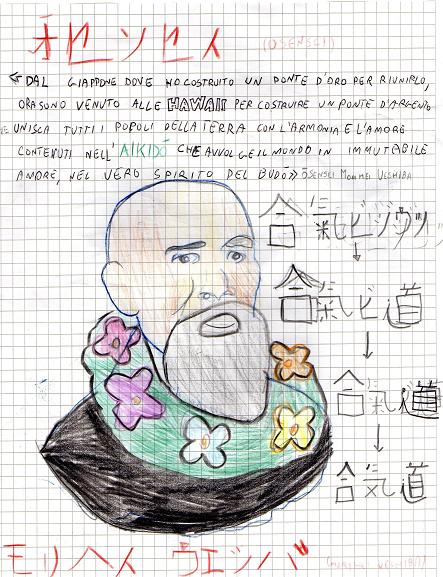 オセンセイ (OSENSEI)
« DAL GIAPPONE DOVE HO COSTRUITO UN PONTE D'ORO PER RIUNIRLO,
ORA SONO VENUTO ALLE HAWAII PER COSTRUIRE UN PONTE D'ARGENTO
CHE UNISCA TUTTI I POPOLI DELLA TERRA CON L'ARMONIA E L'AMORE
CONTENUTI NELL'AIKIDÓ CHE AVVOLGE IL MONDO IN IMMUTABILE
AMORE, NEL VERO SPIRITO DEL BUDO» OSENSEI MORIHEI UESHIBA
合氣ビ
合氣ビ道
合氣道
合気道
モリヘイ ウエシバ